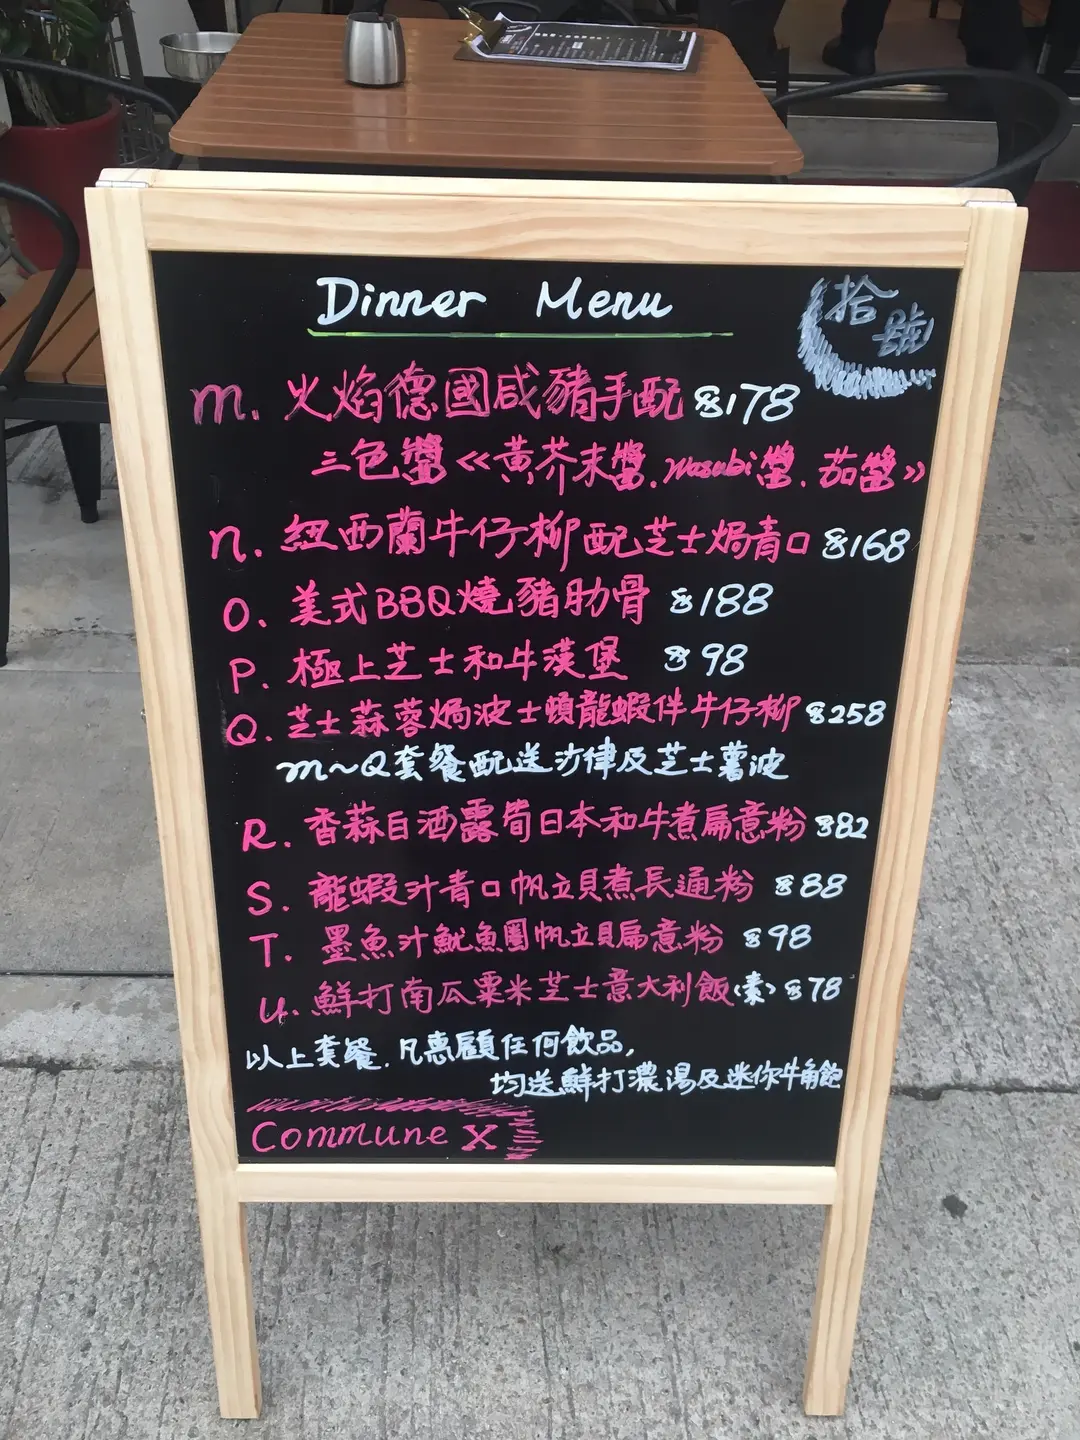 Dinner Menu
拾號
m. 火焰德國咸豬手配 $178
三色醬《黃芥末醬.Wasabi醬.茄醬》
n. 紐西蘭牛仔柳配芝士焗青口 $168
O. 美式BBQ燒豬肋骨 $188
P. 極上芝士和牛漢堡 $98
Q. 芝士蒜蓉焗波士頓龍蝦伴牛仔柳 $258
m~Q套餐配送沙律及芝士薯波
R. 香蒜白酒露筍日本和牛煮扁意粉 $82
S. 龍蝦汁青口帆立貝煮長通粉 $88
T. 墨魚汁魷魚圈帆立貝扁意粉 $98
U. 鮮打南瓜粟米芝士意大利飯(素) $78
以上套餐.凡惠顧任何飲品,
均送鮮打濃湯及迷你牛角飽
Commune X